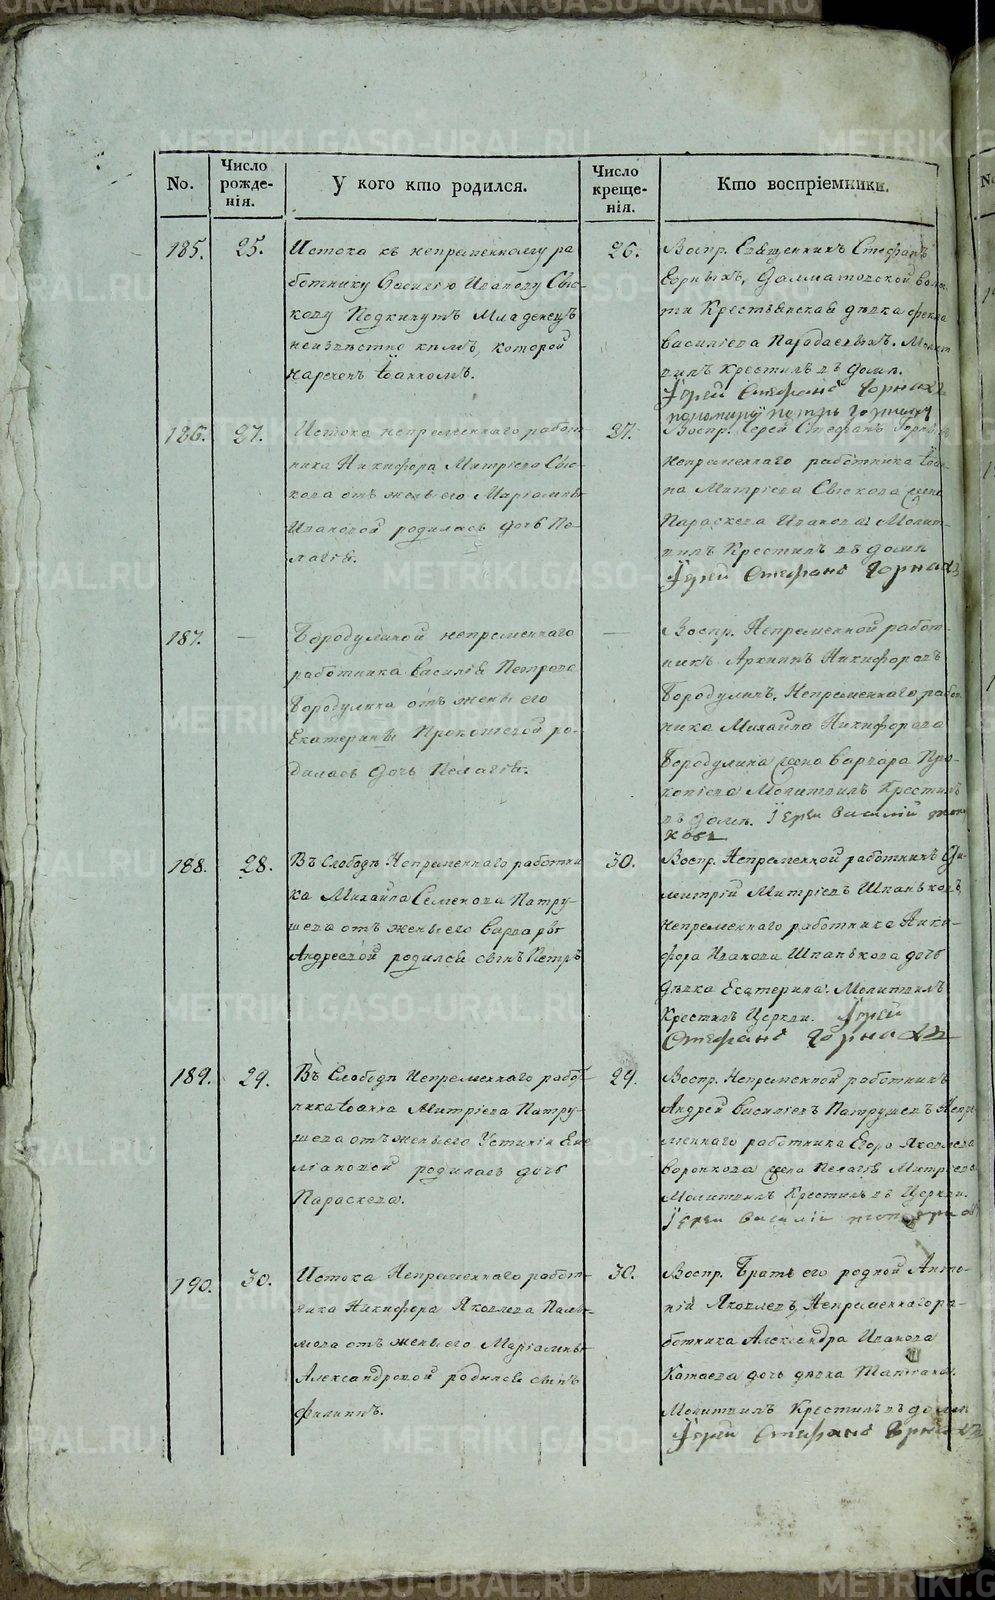 No.
Число рожде-
нія.
У кого кто родился.
Число креще-
нія.
Кто воспріемники.
185.
25.
Истока къ непременному ра
ботнику Василью Иванову Сыс-
кову Подкинутъ Младенецъ
неизвѣстно кѣмъ, которой
наречен Іоанномъ.
26.
Воспр. Священникъ Стефанъ
Горныхъ, Далматовской воло
ти Крестьянская дѣвка
Васильева Молит
вилъ крестилъ въ доме.
Іерей Стефанъ Горныхъ
186.
27.
Истока непременнаго работ
ника Никифора Митріева Сыс-
кова отъ жены его Маріамны
Ивановой родилась дочь Пе-
лагія.
27.
Воспр. Іерей Стефанъ Горныхъ,
непременнаго работника Іоан
на Митріева Сыскова жена
Параскева Иванова Молит-
вилъ Крестилъ въ доме
Іерей Стефанъ Горныхъ
187.
—
Бородулиной непременнаго
работника Василія Петрова
Бородулина отъ жены его
Екатерины Прокопьевой ро-
дилась дочь Пелагія.
—
Воспр. Непременной работ-
никъ Архипъ Никифоровъ
Бородулинъ, Непременнаго работ
ника Михайла Никифорова
Бородулина жена Варвара Про-
копьева Молитвилъ Крестилъ
въ доме. Іерей Василій
188.
28.
Въ Слободе Непременнаго работни
ка Михайла Семенова Патру-
шева отъ жены его Варвары
Андреевой родился сынъ Петръ
30.
Воспр. Непременной работникъ Ди-
митрій Митріевъ Шпаньковъ,
непременнаго работника Ники-
фора Иванова Шпанькова дочь
дѣвка Екатерина. Молитвилъ
Крестилъ Церкви. Іерей
Стефанъ Горныхъ
189.
29.
Въ Слободе Непременнаго работ
ника Іоанна Митріева Патру-
шева отъ жены его Устиніи Еме
ліановой родилась дочь
Параскева.
29.
Воспр. Непременной работникъ
Андрей Васильевъ Патрушевъ Непре
меннаго работника Егора Яковлева
Воронкова жена Пелагія Митріева
Молитвилъ Крестилъ въ Церкви.
Іерей Василій
190.
30.
Истока Непременнаго работ-
ника Никифора Яковлева Пань-
кова отъ жены его Маріамны
Александровой родился сынъ
Филиппъ.
30.
Воспр. Братъ его родной Анто-
ній Яковлевъ, Непременнаго ра-
ботника Александра Иванова
Катаева дочь дѣвка Татіана.
Молитвилъ Крестилъ въ доме
Іерей Стефанъ Горныхъ
METRIKI.GASO-URAL.RU